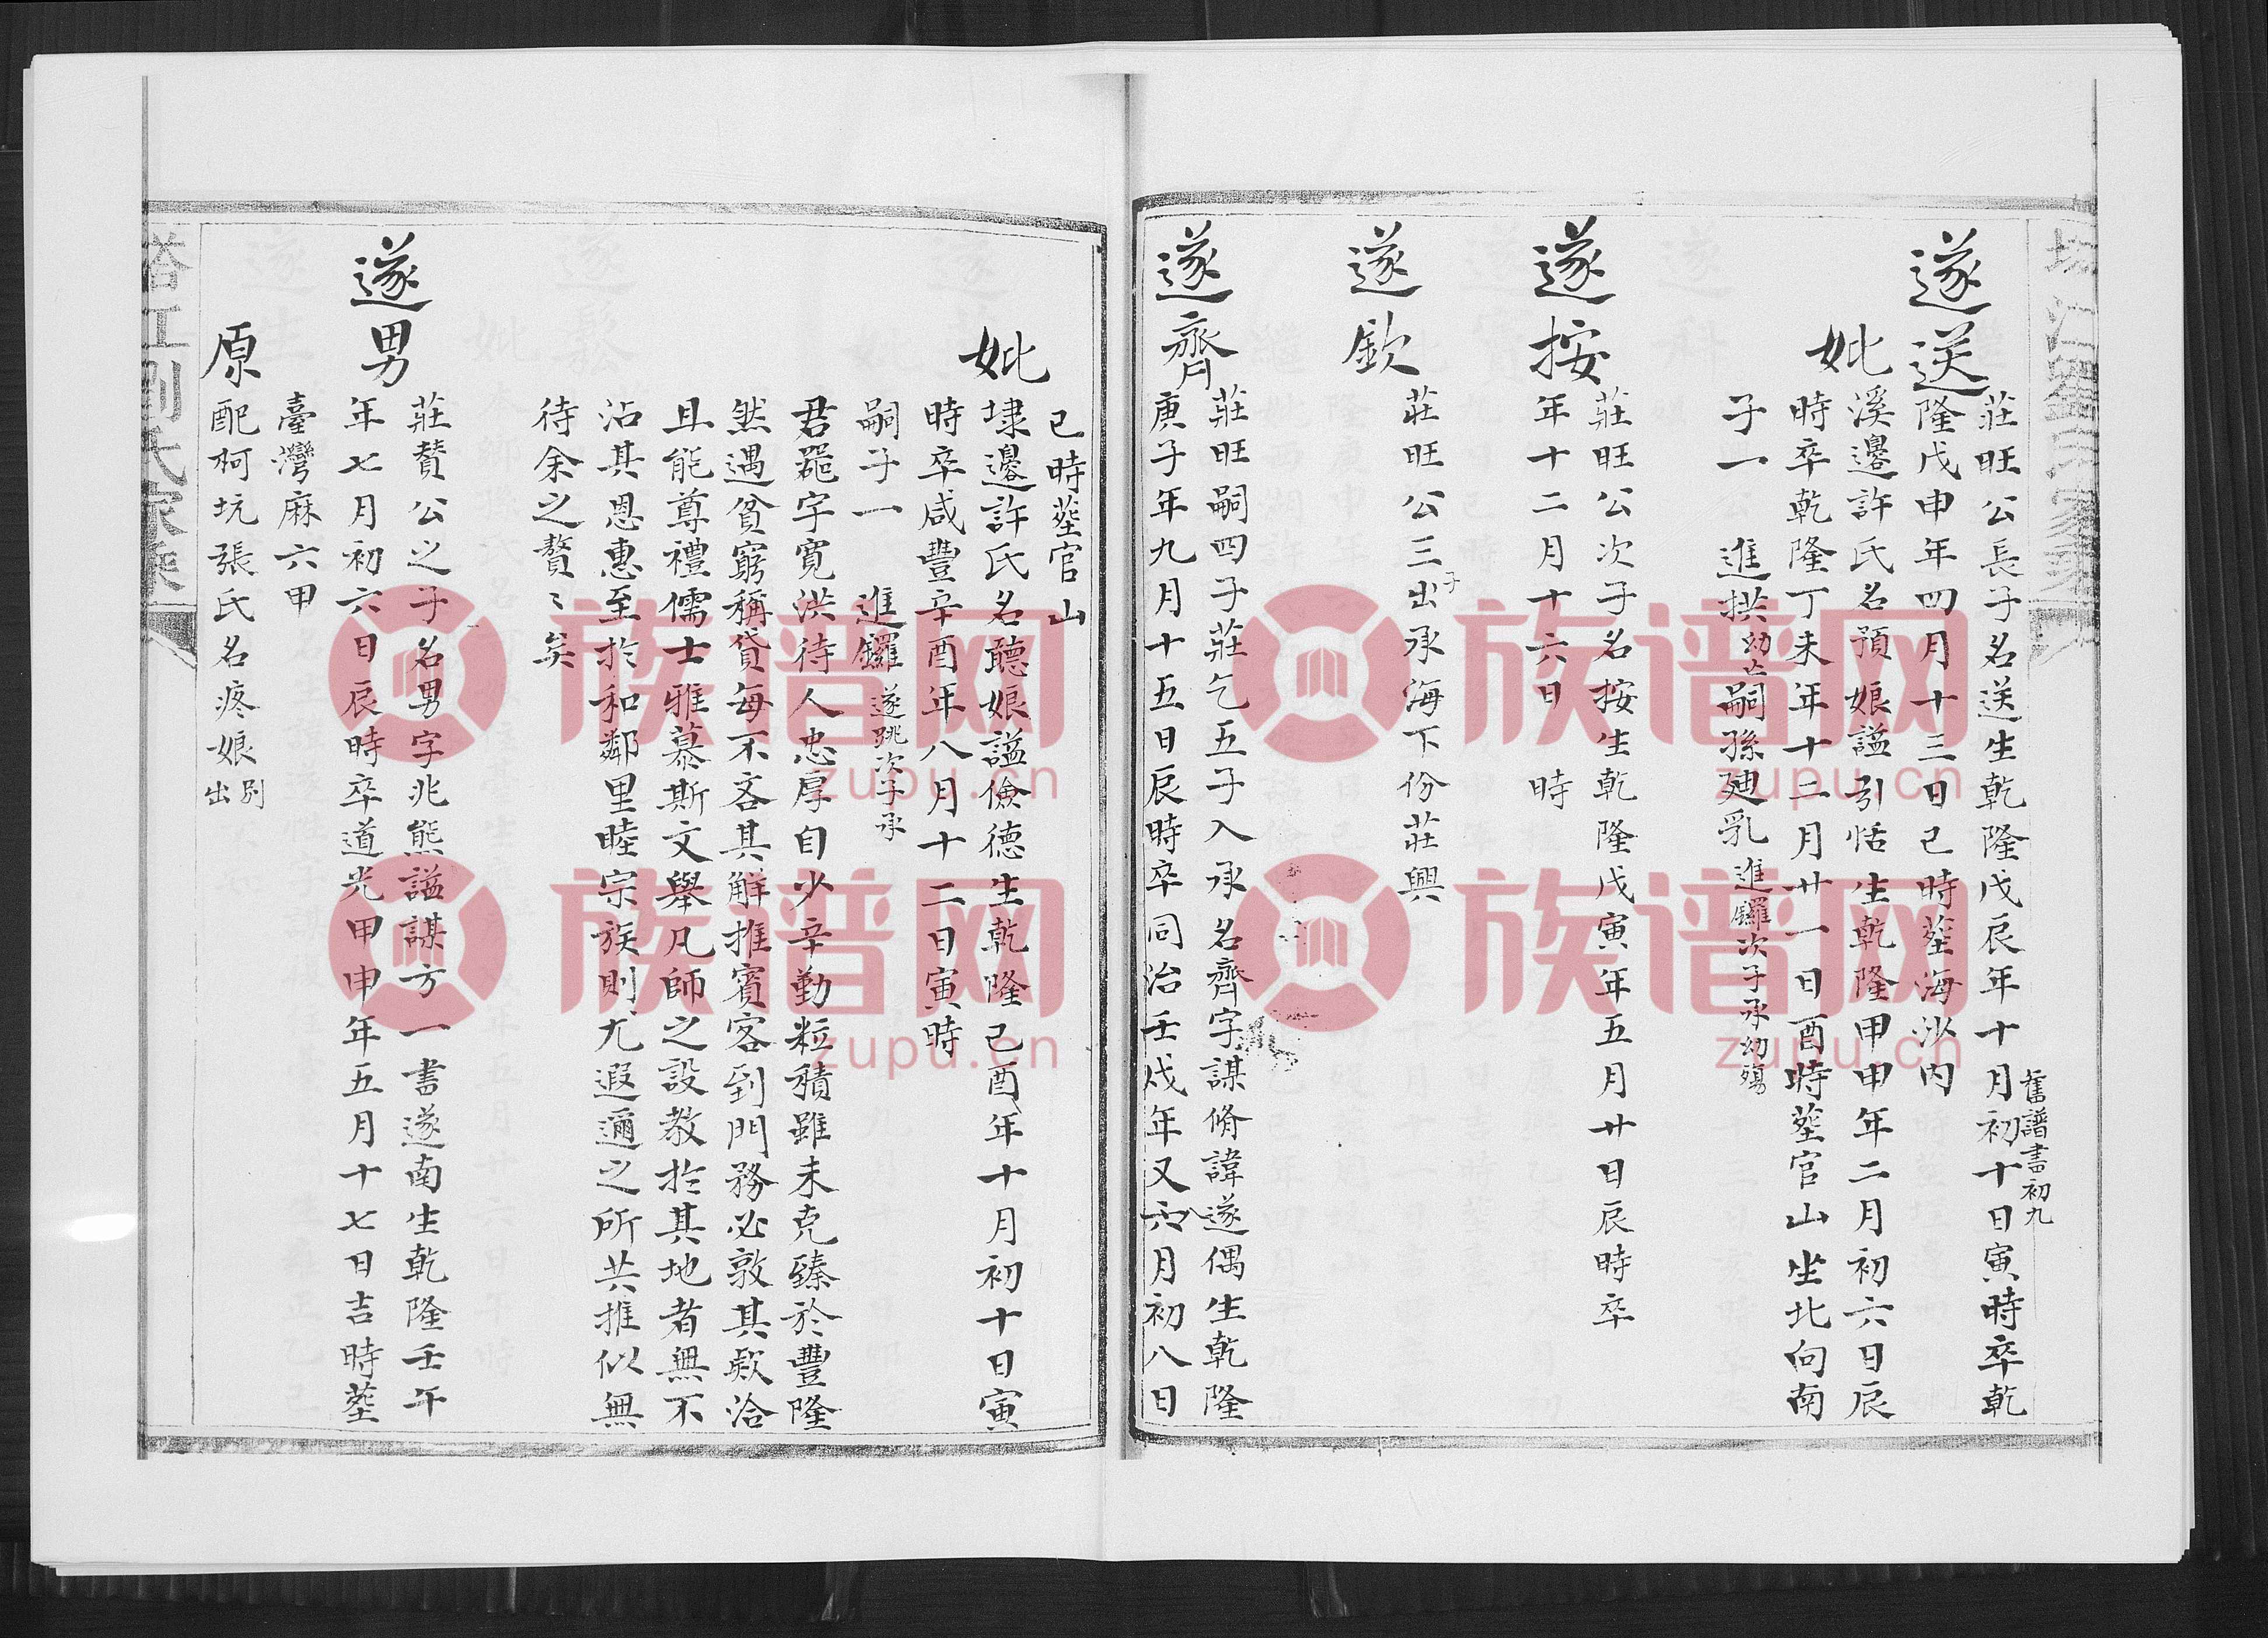 遂送
莊旺公長子名送生乾隆戊辰年十月初十日寅時卒乾
舊譜書初九
隆戊申年四月十三日己時塟海沙內
妣
溪邊許氏名預娘謚引恬生乾隆甲申年二月初六日辰
時卒乾隆丁未年十二月廿一日酉時塟官山坐北向南
子一 進拱幼亡嗣孫廸乳進鑼次子承幼殤
遂按
莊旺公次子名按生乾隆戊寅年五月廿日辰時卒
年十二月十六日 時
遂欽
莊旺公三子出承海下份莊興
遂齊
莊旺嗣四子莊乞五子入承名齊字謀脩諱遂偶生乾隆
庚子年九月十五日辰時卒同治壬戌年又八月初八日
己時塟官山
妣
埭邊許氏名聽娘謚儉德生乾隆己酉年十月初十日寅
時卒咸豐辛酉年八月十二日寅時
嗣子一 進鑼遂跳次子承
君器字寬洪待人忠厚自少辛勤粒積雖未克臻於豐隆
然遇貧窮稱貸每不吝其解推賓客到門務必敦其欵洽
且能尊禮儒士雅慕斯文舉凡師之設教於其地者無不
沾其恩惠至於和鄰里睦宗族則尤遐邇之所共推似無
待余之贅〻矣
遂男
莊賛公之子名男字兆熊謚謀方一書遂南生乾隆壬午
年七月初六日辰時卒道光甲申年五月十七日吉時塟
臺灣麻六甲
原
配柯坑張氏名疼娘別出
劉氏家乘
族谱网
zupu.cn
族谱网
zupu.cn
族谱网
zupu.cn
族谱网
zupu.cn